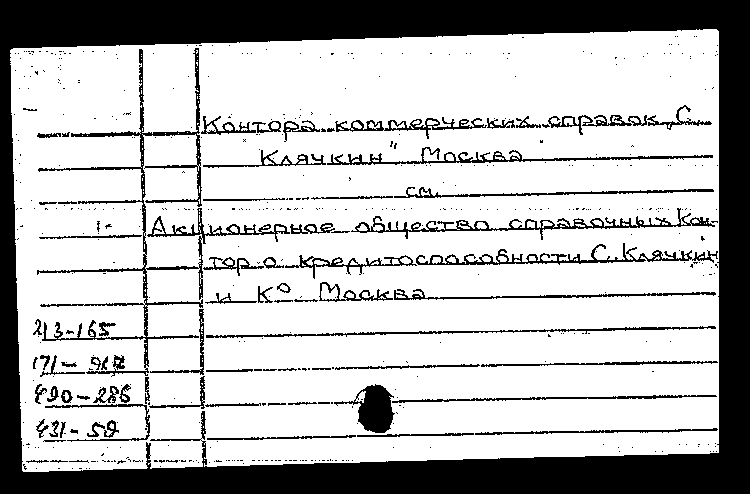 Контора коммерческих справок „С.
Клячкин" Москва
см.
Акционерное общество справочных Кон-
тор о кредитоспособности С. Клячкин
и Ко Москва
213-165
171-
490-286
431-59